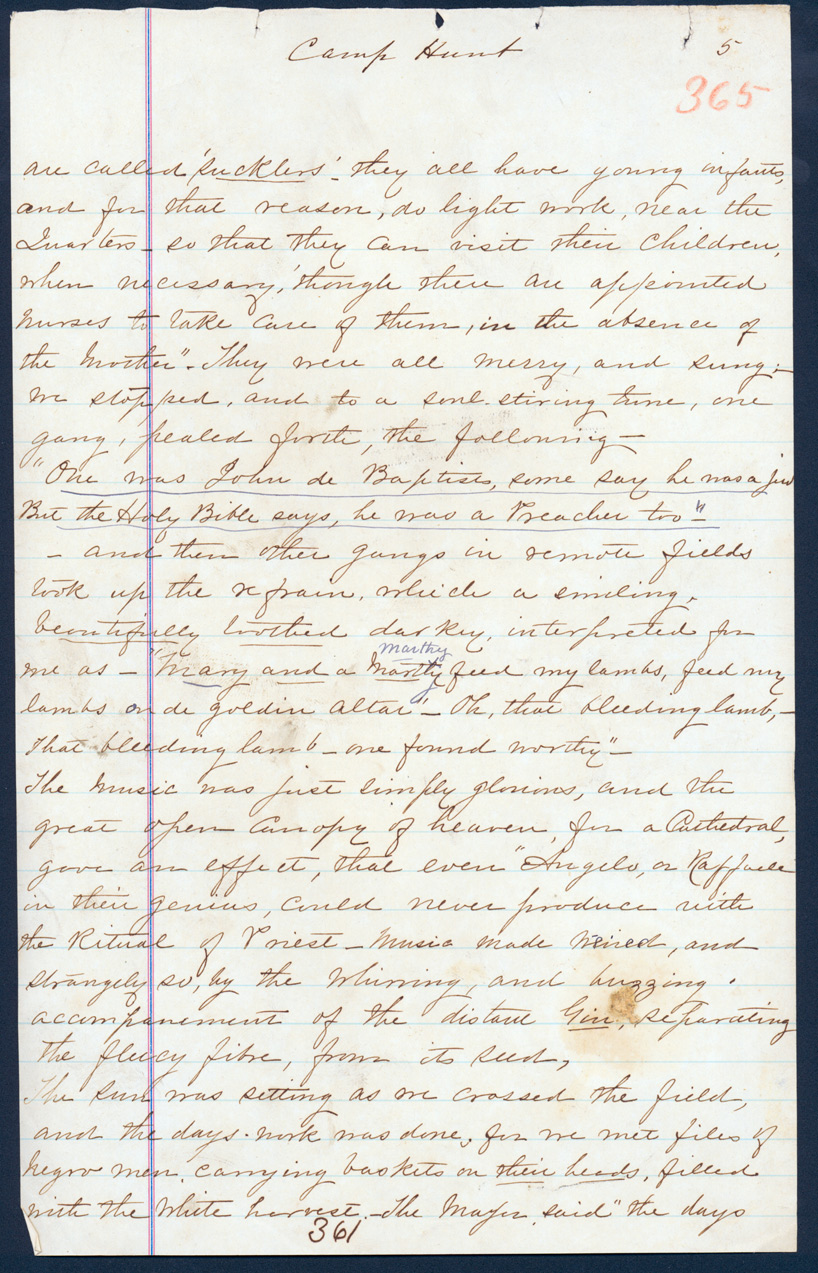 Camp Hunt 5
365
are called 'sucklers'- they all have young infants,
and for that reason, do light work, near the
Quarters - so that they can visit their children,
when necessary, 'though there are appointed
nurses to take care of them, in the absence of
the Mother". They were all merry, and sung;-
we stopped, and to a soul stiring tune, one
gang, pealed forth, the following -
"One was John de Baptist, some say he was a Jew
But the Holy Bible says, he was a Preacher too"-
- and then other gangs in remote fields
took up the refrain, which a smiling,
beautifully toothed darkey, interpreted for
marthy
me as - "Mary and a feed my lambs, feed my
lambs on de goldin altar"- Oh, that bleeding lamb,-
That bleeding lamb - one found worthy"-
The music was just simply glorious, and the
great open canopy of heaven, for a Cathedral,
gave an effect, that even "Angelo, or Raffaele
in their genius, could never produce with
the Ritual of Priest - Music made weired, and
strangely so, by the whirring, and buzzing
accompanement of the distant Gin, separating
the fleecy fibre, from its seed,
The sun was setting as we crossed the field,
and the days. work was done, for we met files of
negro men, carrying baskets on their heads, filled
with the white harvest.- The Major, said "the days
361